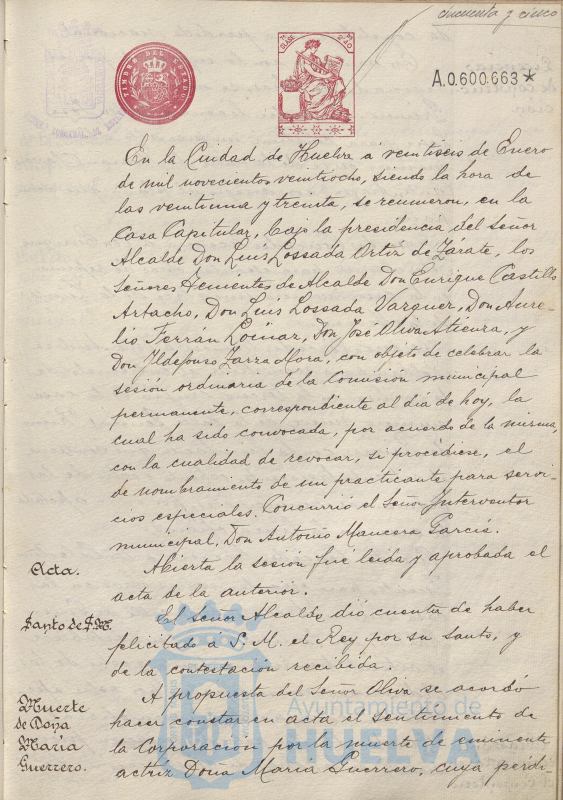 cincuenta y cinco
TIMBRE DEL ESTADO
7ª CLASE
A.0.600.663*
En la Ciudad de Huelva á veintiseis de Enero
de mil novecientos veintiocho, siendo la hora de
las veintiuna y treinta, se reunieron, en la
Casa Capitular, bajo la presidencia del señor
Alcalde Don Luis Lossada Ortiz de Zárate, los
señores Tenientes de Alcalde Don Enrique Castillo
Artacho, Don Luis Lossada Vazquez, Don Aure-
lio Terrán Loinaz, Don José Oliva Atienza, y
Don Ildefonso Zarza Mora, con objeto de celebrar la
sesión ordinaria de la Comisión municipal
permanente, correspondiente al dia de hoy, la
cual ha sido convocada, por acuerdo de la misma,
con la cualidad de revocar, si procediese, el
de nombramiento de un practicante para servi-
cios especiales. Concurrió el Señor Interventor
municipal, Don Antonio Mancera Garcia.
Acta.
Abierta la sesión fué leida y aprobada el
acta de la anterior.
Santo de S.M.
El señor Alcalde, dió cuenta de haber
felicitado á S. M. el Rey por su santo, y
de la contestación recibida.
Muerte
de Doña
María
Guerrero.
A propuesta del Señor Oliva se acordó
hacer constar en acta el sentimiento de
la Corporación por la muerte de eminente
actriz Doña María Guerrero, cuya pérdi-
Ayuntamiento de
HUELVA